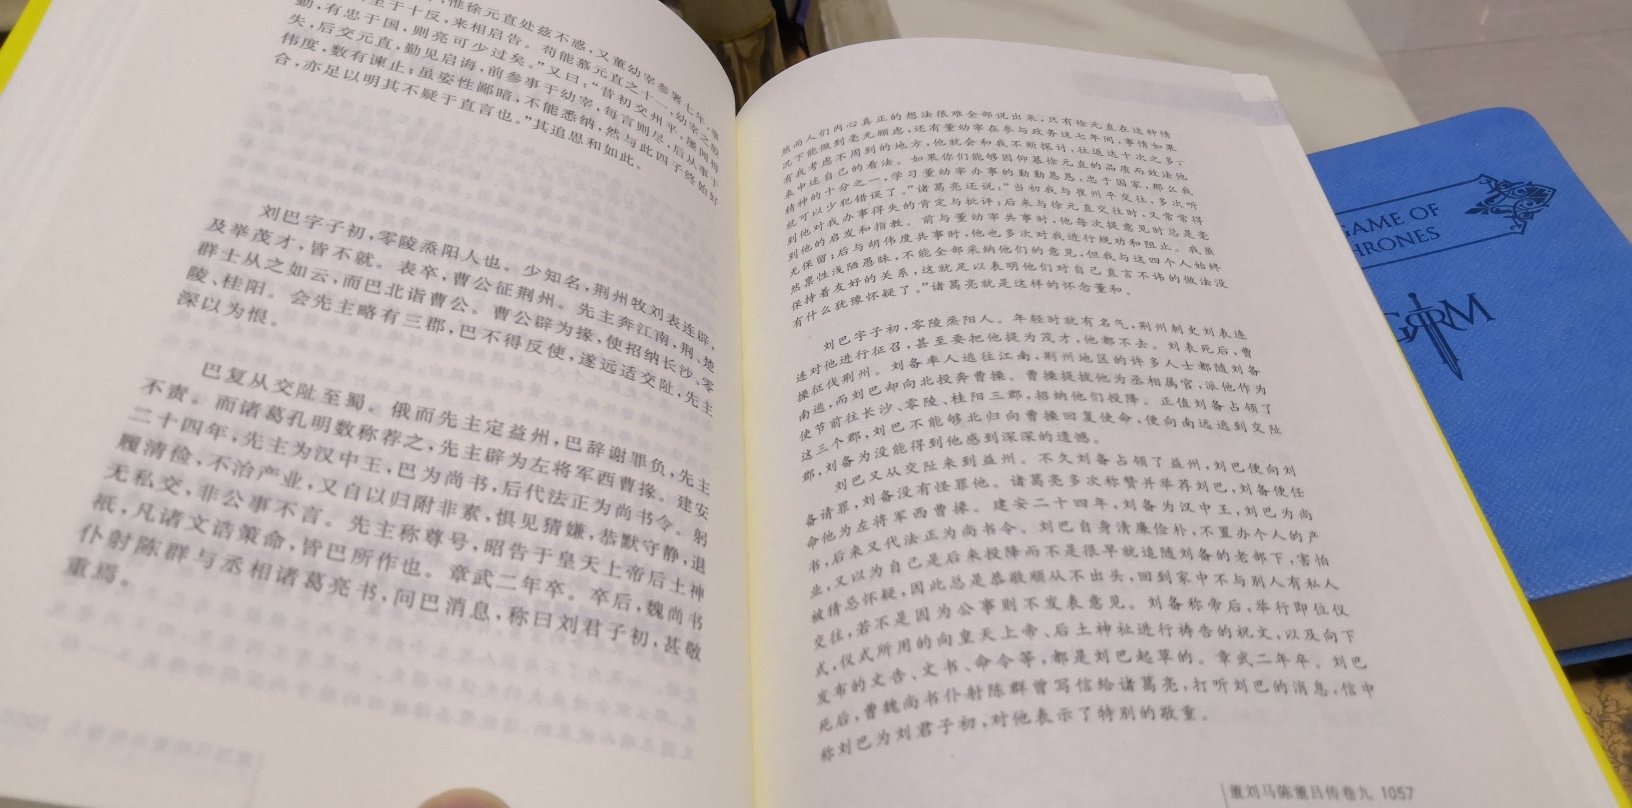 惟徐元直处兹不惑，又董幼宰参署七年，事
至于十反，来相启告。苟能慕元直之十一，幼宰之殷
勤，有忠于国，则亮可少过矣。”又曰：“昔初交州平，屡闻得
失，后交元直，勤见启诲，前参事于幼宰，每言则尽，后从事于
伟度，数有谏止；虽姿性鄙暗，不能悉纳，然与此四子终始好
合，亦足以明其不疑于直言也。”其追思和如此。
刘巴字子初，零陵烝阳人也。少知名，荆州牧刘表连辟，
及举茂才，皆不就。表卒，曹公征荆州。先主奔江南，荆、楚
群士从之如云，而巴北诣曹公。曹公辟为掾，使招纳长沙、零
陵、桂阳。会先主略有三郡，巴不得反使，遂远适交阯，先主
深以为恨。
巴复从交阯至蜀。俄而先主定益州，巴辞谢罪负，先主
不责。而诸葛孔明数称荐之，先主辟为左将军西曹掾。建安
二十四年，先主为汉中王，巴为尚书，后代法正为尚书令。躬
履清俭，不治产业，又自以归附非素，惧见猜嫌，恭默守静，退
无私交，非公事不言。先主称尊号，昭告于皇天上帝后土神
祇，凡诸文诰策命，皆巴所作也。章武二年卒。卒后，魏尚书
仆射陈群与丞相诸葛亮书，问巴消息，称曰刘君子初，甚敬
重焉。
然而人们内心真正的想法很难全部说出来，只有徐元直在这种情
况下能做到毫无顾虑；还有董幼宰在参与政务这七年间，事情如果
有我考虑不周到的地方，他就会和我不断探讨，往返达十次之多，
来申述自己的看法。如果你们能够因仰慕徐元直的品质而效法他
精神的十分之一，学习董幼宰办事的勤勤恳恳，忠于国家，那么我
就可以少犯错误了。”诸葛亮还说：“当初我与崔州平交往，多次听
到他对我办事得失的肯定与批评；后来与徐元直交往时，又常常得
到他的启发和指教。前与董幼宰共事时，他每次提意见时总是毫
无保留；后与胡伟度共事时，他也多次对我进行规劝和阻止。我虽
然禀性浅陋愚昧，不能全部采纳他们的意见，但我与这四个人始终
保持着友好的关系，这就足以表明他们对自己直言不讳的做法没
有什么犹豫怀疑了。”诸葛亮就是这样的怀念董和。
刘巴字子初，零陵烝阳人。年轻时就有名气，荆州刺史刘表连
连对他进行征召，甚至要把他提为茂才，他都不去。刘表死后，曹
操征伐荆州。刘备率人逃往江南，荆州地区的许多人士都随刘备
南逃，而刘巴却向北投奔曹操。曹操提拔他为丞相属官，派他作为
使节前往长沙、零陵、桂阳三郡，招纳他们投降。正值刘备占领了
这三个郡，刘巴不能够北归向曹操回复使命，便向南远逃到交阯
郡，刘备为没能得到他感到深深的遗憾。
刘巴又从交阯来到益州。不久刘备占领了益州，刘巴便向刘
备请罪，刘备没有怪罪他。诸葛亮多次称赞并举荐刘巴，刘备便任
命他为左将军西曹掾。建安二十四年，刘备为汉中王，刘巴为尚
书，后来又代法正为尚书令。刘巴自身清廉俭朴，不置办个人的产
业，又以为自己是后来投降而不是很早就追随刘备的老部下，害怕
被猜忌怀疑，因此总是恭敬顺从不出头，回到家中不与别人有私人
交往，若不是因为公事则不发表意见。刘备称帝后，举行即位仪
式，仪式所用的向皇天上帝、后土神祉进行祷告的祝文，以及向下
发布的文告、文书、命令等，都是刘巴起草的。章武二年卒。刘巴
死后，曹魏尚书仆射陈群曾写信给诸葛亮，打听刘巴的消息，信中
称刘巴为刘君子初，对他表示了特别的敬重。
董刘马陈董吕传卷九 1057
GAME OF
THRONES
GRRM